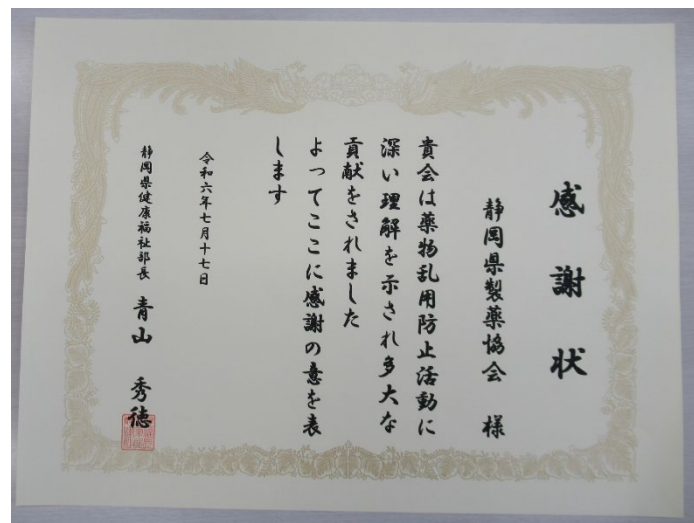 感謝状
静岡県製薬協会 様
貴会は薬物乱用防止活動に
深い理解を示され多大な
貢献をされました
よってここに感謝の意を表
します
令和六年七月十七日
静岡県健康福祉部長 青山 秀徳